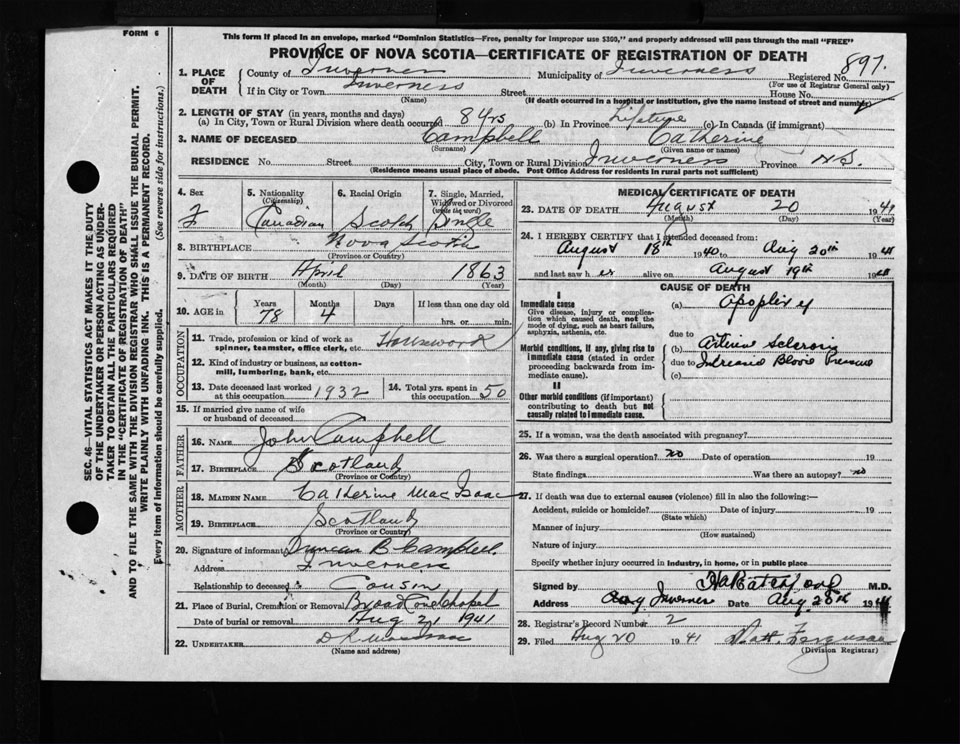 FORM 6
This form if placed in an envelope, marked "Dominion Statistics—Free, penalty for improper use $300," and properly addressed will pass through the mail "FREE"
PROVINCE OF NOVA SCOTIA—CERTIFICATE OF REGISTRATION OF DEATH
1. PLACE OF DEATH County of Inverness Municipality of Inverness Registered No. 897.
(For use of Registrar General only)
If in City or Town Inverness Street House No.
(Name) (If death occurred in a hospital or institution, give the name instead of street and number)
2. LENGTH OF STAY (in years, months and days)
(a) In City, Town or Rural Division where death occurred 84 rs (b) In Province Lifetime (c) In Canada (if immigrant)
3. NAME OF DECEASED Campbell Catherine
(Surname) (Given name or names)
RESIDENCE No. Street City, Town or Rural Division Inverness Province N.S.
(Residence means usual place of abode. Post Office Address for residents in rural parts not sufficient)
4. Sex F
5. Nationality (Citizenship) Canadian
6. Racial Origin Scotch
7. Single, Married, Widowed or Divorced (write the word) Single
8. BIRTHPLACE Nova Scotia
(Province or Country)
9. DATE OF BIRTH April 1863
(Month) (Day) (Year)
10. AGE Years 78 Months 4 Days If less than one day old hrs. or min.
OCCUPATION
11. Trade, profession or kind of work as spinner, teamster, office clerk, etc. Housework
12. Kind of industry or business, as cotton-mill, lumbering, bank, etc.
13. Date deceased last worked at this occupation 1932
14. Total yrs. spent in this occupation 50
15. If married give name of wife or husband of deceased
FATHER
16. NAME John Campbell
17. BIRTHPLACE Scotland
(Province or Country)
MOTHER
18. MAIDEN NAME Catherine Mac Isaac
19. BIRTHPLACE Scotland
(Province or Country)
20. Signature of informant Duncan B. Campbell.
Address Inverness
Relationship to deceased Cousin
21. Place of Burial, Cremation or Removal Broad Cove Chapel
Date of burial or removal Aug 21 1941
22. UNDERTAKER
(Name and address)
MEDICAL CERTIFICATE OF DEATH
23. DATE OF DEATH August 20 1941
(Month) (Day) (Year)
24. I HEREBY CERTIFY that I attended deceased from:
August 18th 1940 to Aug 20th 1941
and last saw her alive on August 19th 19
CAUSE OF DEATH
Immediate cause
Give disease, injury or complication which caused death, not the mode of dying, such as heart failure, asphyxia, asthenia, etc.
(a) Apoplexy
due to
Morbid conditions, if any, giving rise to immediate cause (stated in order proceeding backwards from immediate cause).
(b) Arterio Sclerosis
due to Increased Blood Pressure
(c)
II
Other morbid conditions (if important) contributing to death but not causally related to immediate cause.
25. If a woman, was the death associated with pregnancy?
26. Was there a surgical operation? no Date of operation 19
State findings Was there an autopsy? no
27. If death was due to external causes (violence) fill in also the following:—
Accident, suicide or homicide? Date of injury 19
(State which)
Manner of injury
(How sustained)
Nature of injury
Specify whether injury occurred in Industry, in home, or in public place
Signed by M.D.
Address Inverness Date Aug 28th 19
28. Registrar's Record Number 2
29. Filed Aug 20 1941 Ferguson
(Division Registrar)
SEC. 46—VITAL STATISTICS ACT MAKES IT THE DUTY
OF THE UNDERTAKER OR PERSON ACTING AS UNDER-
TAKER TO OBTAIN ALL THE PARTICULARS REQUIRED
IN THE "CERTIFICATE OF REGISTRATION OF DEATH"
AND TO FILE THE SAME WITH THE DIVISION REGISTRAR WHO SHALL ISSUE THE BURIAL PERMIT.
WRITE PLAINLY WITH UNFADING INK. THIS IS A PERMANENT RECORD.
Every item of information should be carefully supplied. (See reverse side for instructions.)